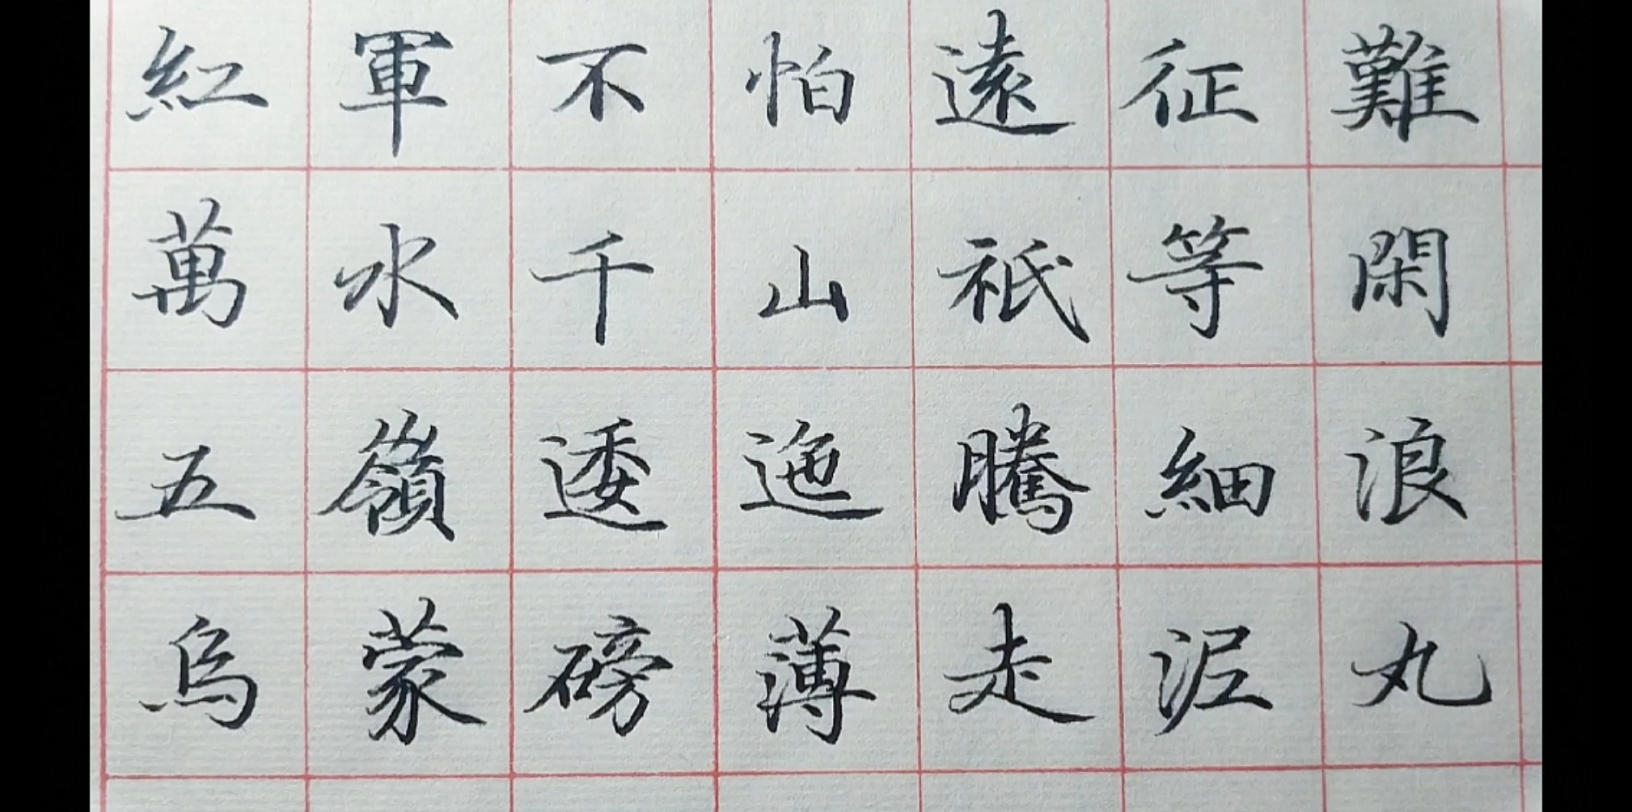 紅軍不怕遠征難
萬水千山祇等閑
五嶺逶迤騰細浪
烏蒙磅薄走泥丸